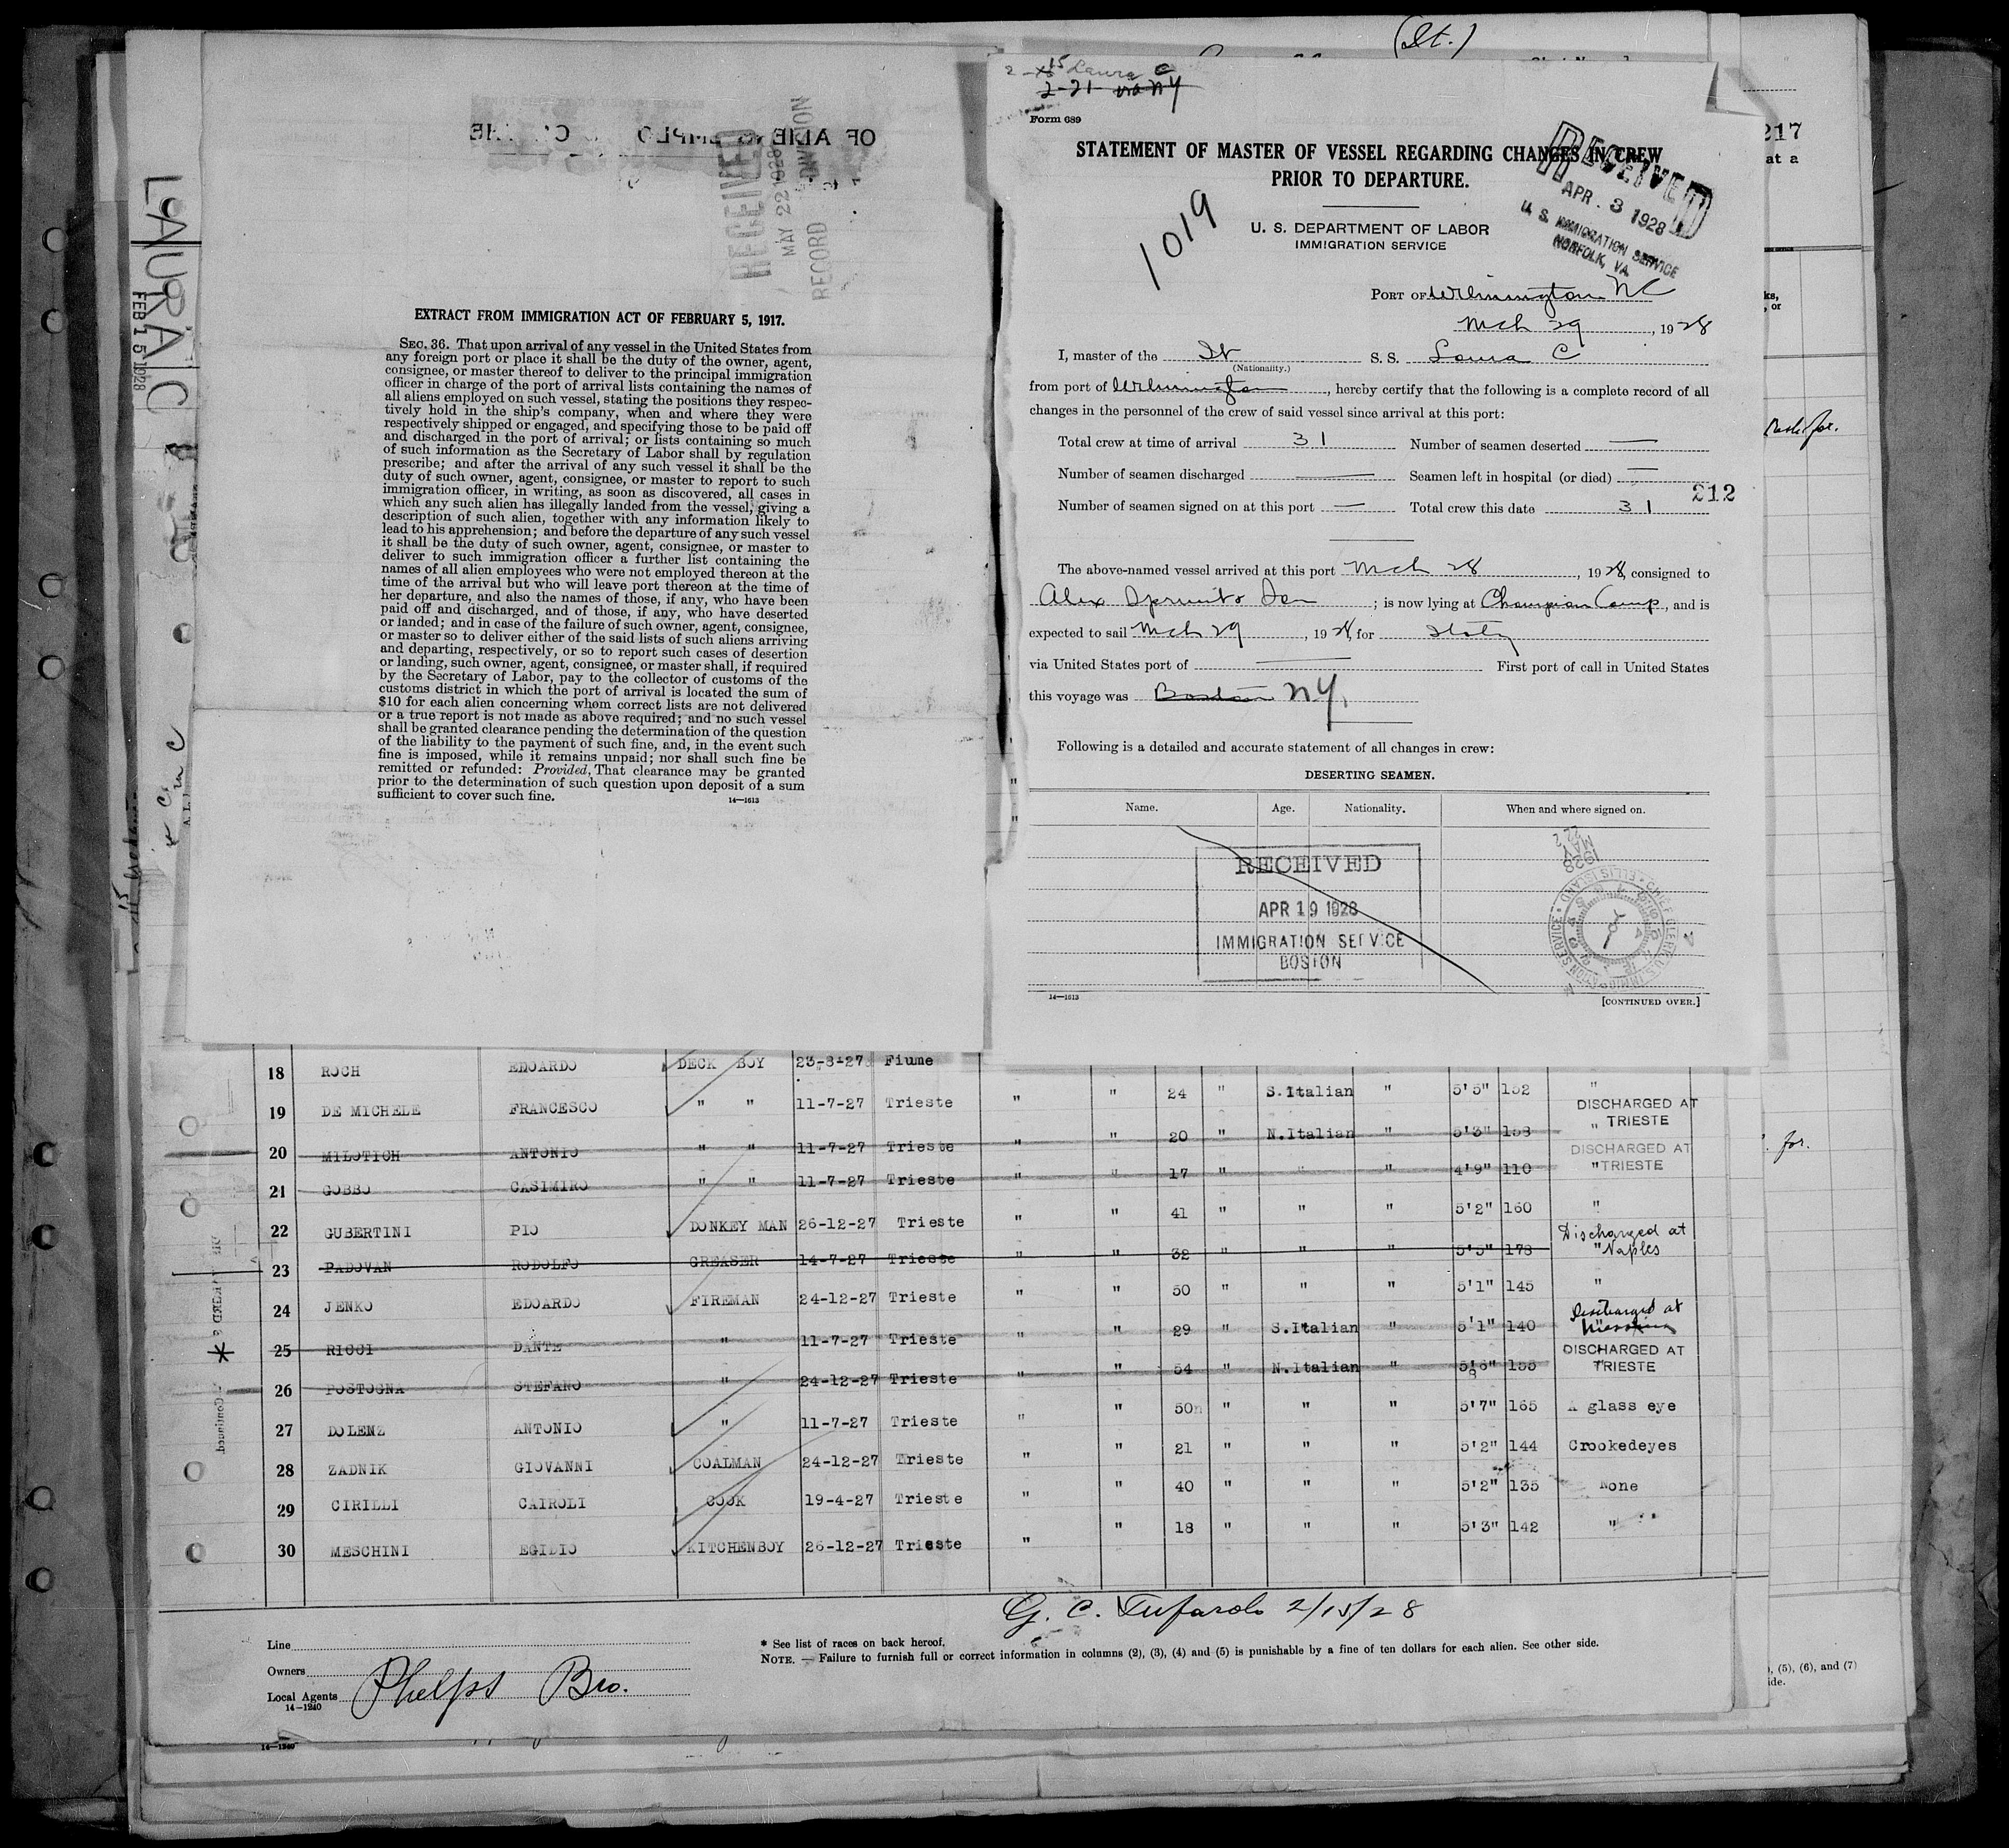 (It.)
LAURA C
FEB 15 1928
RECEIVED
MAY 22 1928
RECORD DIVISION
EXTRACT FROM IMMIGRATION ACT OF FEBRUARY 5, 1917.
SEC. 36. That upon arrival of any vessel in the United States from
any foreign port or place it shall be the duty of the owner, agent,
consignee, or master thereof to deliver to the principal immigration
officer in charge of the port of arrival lists containing the names of
all aliens employed on such vessel, stating the positions they respec-
tively hold in the ship's company, when and where they were
respectively shipped or engaged, and specifying those to be paid off
and discharged in the port of arrival; or lists containing so much
of such information as the Secretary of Labor shall by regulation
prescribe; and after the arrival of any such vessel it shall be the
duty of such owner, agent, consignee, or master to report to such
immigration officer, in writing, as soon as discovered, all cases in
which any such alien has illegally landed from the vessel, giving a
description of such alien, together with any information likely to
lead to his apprehension; and before the departure of any such vessel
it shall be the duty of such owner, agent, consignee, or master to
deliver to such immigration officer a further list containing the
names of all alien employees who were not employed thereon at the
time of the arrival but who will leave port thereon at the time of
her departure, and also the names of those, if any, who have been
paid off and discharged, and of those, if any, who have deserted
or landed; and in case of the failure of such owner, agent, consignee,
or master so to deliver either of the said lists of such aliens arriving
and departing, respectively, or so to report such cases of desertion
or landing, such owner, agent, consignee, or master shall, if required
by the Secretary of Labor, pay to the collector of customs of the
customs district in which the port of arrival is located the sum of
$10 for each alien concerning whom correct lists are not delivered
or a true report is not made as above required; and no such vessel
shall be granted clearance pending the determination of the question
of the liability to the payment of such fine, and, in the event such
fine is imposed, while it remains unpaid; nor shall such fine be
remitted or refunded: Provided, That clearance may be granted
prior to the determination of such question upon deposit of a sum
sufficient to cover such fine.
14—1613
15 Laura C
2-21 via NY
Form 689
STATEMENT OF MASTER OF VESSEL REGARDING CHANGES IN CREW
PRIOR TO DEPARTURE.
1019
U. S. DEPARTMENT OF LABOR
IMMIGRATION SERVICE
RECEIVED
APR. 3 1928
U. S. IMMIGRATION SERVICE
NORFOLK, VA.
PORT OF Wilmington NC
Mch 29, 1928
I, master of the It S. S. Laura C
(Nationality.)
from port of Wilmington, hereby certify that the following is a complete record of all
changes in the personnel of the crew of said vessel since arrival at this port:
Total crew at time of arrival 31 Number of seamen deserted —
Number of seamen discharged — Seamen left in hospital (or died) —
212
Number of seamen signed on at this port — Total crew this date 31
The above-named vessel arrived at this port Mch 28, 1928, consigned to
Alex Sprunt & Son; is now lying at Champion Comp, and is
expected to sail Mch 29, 1928, for Italy
via United States port of — First port of call in United States
this voyage was Boston NY.
Following is a detailed and accurate statement of all changes in crew:
DESERTING SEAMEN.
Name. Age. Nationality. When and where signed on.
RECEIVED
APR 19 1928
IMMIGRATION SERVICE
BOSTON
14—1613
[CONTINUED OVER.]
217
at a
18 ROCH EDOARDO DECK BOY 23-8-27 Fiume " " 24 " S.Italian " 5'5" 152 "
19 DE MICHELE FRANCESCO " " 11-7-27 Trieste " " 20 " N.Italian " 5'3" 158 DISCHARGED AT " TRIESTE
20 MILOTICH ANTONIO " " 11-7-27 Trieste " " 17 " " " 4'9" 110 DISCHARGED AT " TRIESTE
21 GOBBO CASIMIRO " " 11-7-27 Trieste " " 41 " " " 5'2" 160 "
22 GUBERTINI PIO DONKEY MAN 26-12-27 Trieste " " 32 " " " 5'5" 178 Discharged at " Naples
23 PADOVAN RODOLFO GREASER 14-7-27 Trieste " " 50 " " " 5'1" 145 "
24 JENKO EDOARDO FIREMAN 24-12-27 Trieste " " 29 " S.Italian " 5'1" 140 Discharged at Messina
25 RICCI DANTE " 11-7-27 Trieste " " 54 " N.Italian " 5'6" 155 DISCHARGED AT TRIESTE
26 POSTOGNA STEFANO " 24-12-27 Trieste " " 50 " " " 5'7" 165 A glass eye
27 DOLENZ ANTONIO " 11-7-27 Trieste " " 21 " " " 5'2" 144 Crookedeyes
28 ZADNIK GIOVANNI COALMAN 24-12-27 Trieste " " 40 " " " 5'2" 135 None
29 CIRILLI CAIROLI COOK 19-4-27 Trieste " " 18 " " " 5'3" 142 "
30 MESCHINI EGIDIO KITCHENBOY 26-12-27 Trieste "
G. C. Tufarolo 2/15/28
Line
Owners
Local Agents Phelps Bro.
14—1240
* See list of races on back hereof.
NOTE. — Failure to furnish full or correct information in columns (2), (3), (4) and (5) is punishable by a fine of ten dollars for each alien. See other side.
(5), (6), and (7)
14—1240